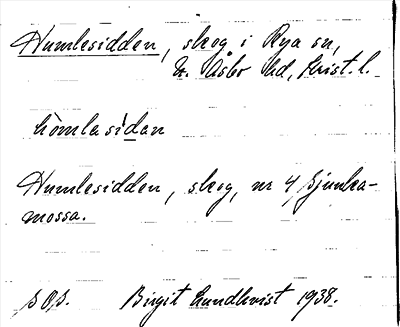 Humlesidden, skog i Rya sn,
N. Åsbo hd, Krist. l.
hòmlasídan
Humlesidden, skog, nr 4 Sjunka-
mossa.
s Os. Birgit Lundkvist 1938.